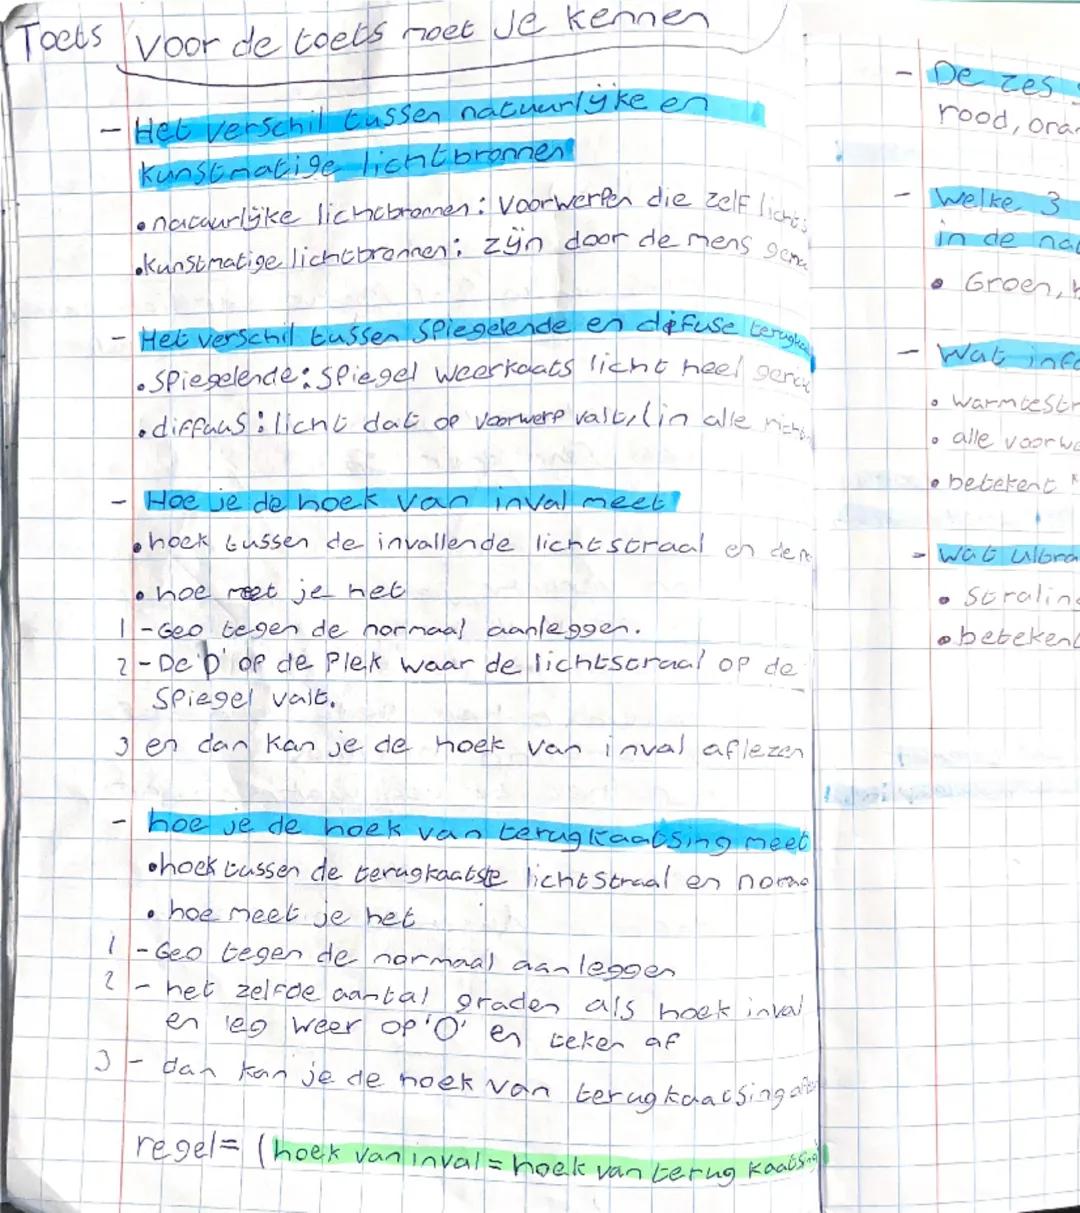 Toets voor de toets moet je kennen
- Het verschil tussen natuurlijke en
kunstmatige lichtbronnen
• natuurlijke lichtbronnen: Voorwerpen die zelf licht
• kunstmatige lichtbronnen: zijn door de mens gema
- Het verschil tussen Spiegelende en difuse terugka
• Spiegelende: Spiegel weerkaats licht heel
• diffuus: licht dat op voorwerp valt, (in alle
- Hoe je de hoek van inval meet
• hoek tussen de invallende lichtstraal en de
• hoe meet je het
1 - Geo tegen de normaal aanleggen.
2 - De '0' op de Plek waar de lichtstraal op de
Spiegel valt.
3 en dan kan je de hoek van inval aflezen
- hoe je de hoek van terugkaatsing meet
• hoek tussen de terugkaatste lichtstraal en norma
• hoe meet je het
1 - Geo tegen de normaal aanleggen
2 - het zelfde aantal graden als hoek inval
en leg weer op 'O' en teken af
3 - dan kan je de hoek van terugkaatsing
regel= (hoek van inval = hoek van terug kaatsing
- De zes
rood, ora
- Welke 3
in de na
• Groen,
- Wat infa
• warmtestr
• alle voorwe
• betekent
- Wat ulbra
• Straling
• betekent